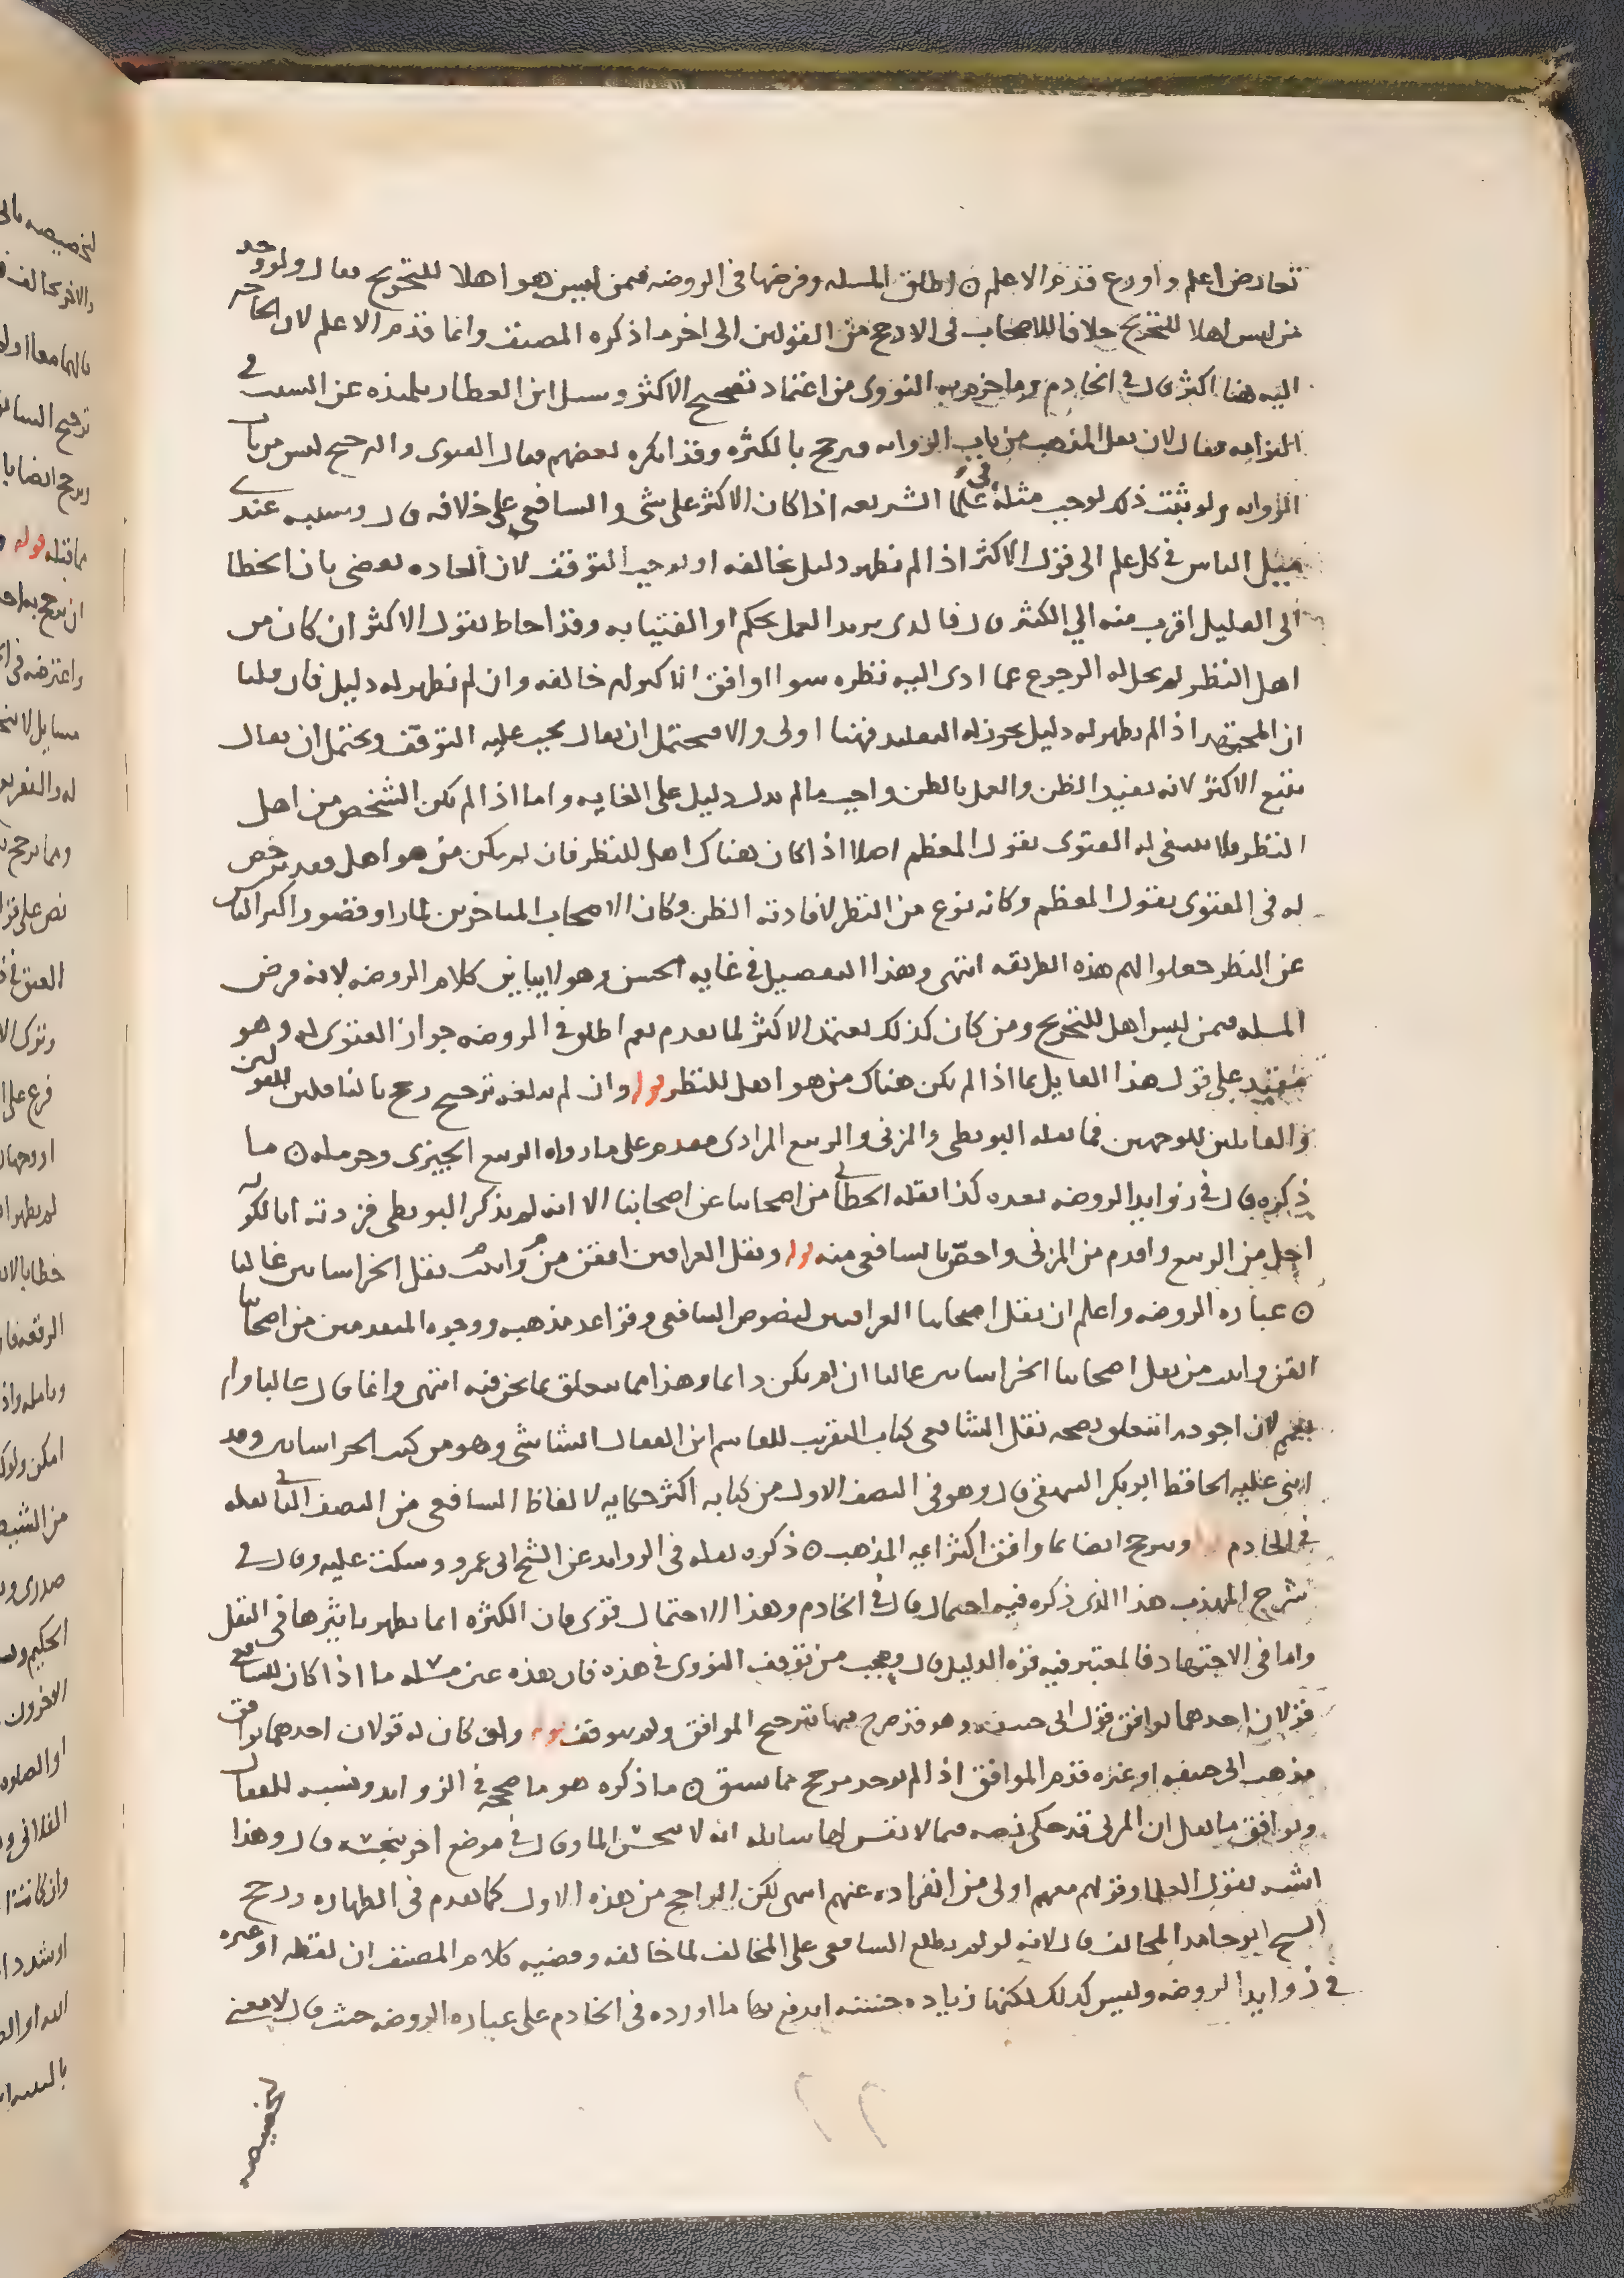 تعارض اعلم واورع قدم الاعلم ه اطلق المسله وفرضها في الروضه فيمن ليس هو اهلا للتخريج فقال ولو وجد
من ليس اهلا للتخريج خلافا للاصحاب في الارجح من القولين الى اخر ما ذكره المصنف وانما قدم الاعلم لان الحاجه
اليه هنا اكثر قال في الخادم وما جزم به النووي من اعتماد تصحيح الاكثر وسيل ابن العطار تلميذه عن السبب في
التزامه فقال لان نقل المذهب من باب الروايه فيرجح بالكثره وقد انكره بعضهم فقال الفتوى والترجيح ليس من باب
الروايه ولو ثبت ذلك لوجب مثله في علما الشريعه اذا كان الاكثر على شي والشافعي على خلافه قال وسببه عندي
ميل الناس في كل علم الى قول الاكثر اذا لم يظهر دليل يخالفه او يوجب التوقف لان العاده تقضي بان الخطا
الى القليل اقرب منه الي الكثير قال فالذي يريد العمل بحكم او الفتيا به وقد احاط بقول الاكثر ان كان من
اهل النظر لم يحل له الرجوع عما ادى اليه نظره سوا اوافق الاكثر ام خالفه وان لم يظهر له دليل فان قلنا
ان المجتهد اذا لم يظهر له دليل يجوز له التقليد فهنا اولى والا فيحتمل ان يقال يجب عليه التوقف ويحتمل ان يقال
يتبع الاكثر لانه يفيد الظن والعمل بالظن واجب ما لم يدل دليل على الغايه واما اذا لم يكن الشخص من اهل
النظر فلا ينبغي له الفتوى بقول المعظم اصلا اذا كان هناك اهل للنظر فان لم يكن من هو اهل فقد يرخص
له في الفتوى بقول المعظم وكانه نوع من النظر لافادته الظن وكان الاصحاب المتاخرين لما راوا قصور اكثر الناس
عن النظر جعلوا لهم هذه الطريقه انتهى وهذا التفصيل في غايه الحسن وهو لا يباين كلام الروضه لانه فرض
المسله فيمن ليس اهل للتخريج ومن كان كذلك يعتمد الاكثر لما تقدم نعم اطلق في الروضه جواز الفتوى له وهو
مقيد على قول هذا القايل بما اذا لم يكن هناك من هو اهل للنظر قوله وان لم يبلغه ترجيح رجح بالناقلين للقولين
والقايلين للوجهين فما نقله البويطي والمزني والربيع المرادي مقدم على ما رواه الربيع الجيزي وحرمله ه ما
ذكره قال في زوايد الروضه بعده كذا نقله الخطابي من اصحابنا عن اصحابنا الا انه لم يذكر البويطي فزدته انا لكونه
اجل من الربيع واقدم من المزني واخص بالشافعي منه قوله ونقل العراقيين اتقن من واثبت نقل الخراسانيين غالبا
ه عباره الروضه واعلم ان نقل اصحابنا العراقيين لنصوص الشافعي وقواعد مذهبه ووجوه المتقدمين من اصحابنا
اتقن واثبت من نقل اصحابنا الخراسانيين غالبا ان لم يكن دايما وهذا مما يتعلق بما نحن فيه انتهى وانما قال غالبا ولم
يعم لان اجود ما يتعلق بصحه نقل الشافعي كتاب التقريب للقاسم ابن القفال الشاشي وهو من كتب الخراسانيين وقد
اثنى عليه الحافظ ابو بكر البيهقي قال وهو في النصف الاول من كتابه اكثر حكايه لالفاظ الشافعي من النصف الثاني نقله
في الخادم قوله ويرجح ايضا بما وافق اكثر ايمه المذهب ه ذكره نقله في الزوايد عن الشيخ ابي عمرو وسكت عليه وقال في
شرح المهذب هذا الذي ذكره فيه احتمال قال في الخادم وهذا الاحتمال قوي فان الكثره انما يظهر تاثيرها في النقل
واما في الاجتهاد فالمعتبر فيه قوه الدليل قال وعجب من توقف النووي في هذه فان هذه عين مسله ما اذا كان للشافعي
قولان احدهما يوافق قول ابي حنيفه وهو قد صرح فيها بترجيح الموافق ولم يتوقف قوله ولو كان له قولان احدهما يوافق
مذهب ابي حنيفه او غيره قدم الموافق اذا لم يوجد مرجح مما سبق ه ما ذكره هو ما صححه في الزوايد ونسبه للقفال
ويوافق ما نقل ان المزني قد حكى نصه فيما لا نفس لها سايله انه لا ينجس الما وقال في موضع اخر ينجسه قال وهذا
اشبه بقول العلما وقولهم معهم اولى من انفراده عنهم انتهى لكن الراجح من هذه الاول كما تقدم في الطهاره ورجح
الشيخ ابو حامد المخالف قال لانه لو لم يطلع الشافعي على المخالف لما خالفه وقضيه كلام المصنف ان لفظه او غيره
في زوايد الروضه وليس كذلك لكنها زياده حسنه اندفع بها ما اورده في الخادم على عباره الروضه حيث قال لا معنى
لتخصيصه